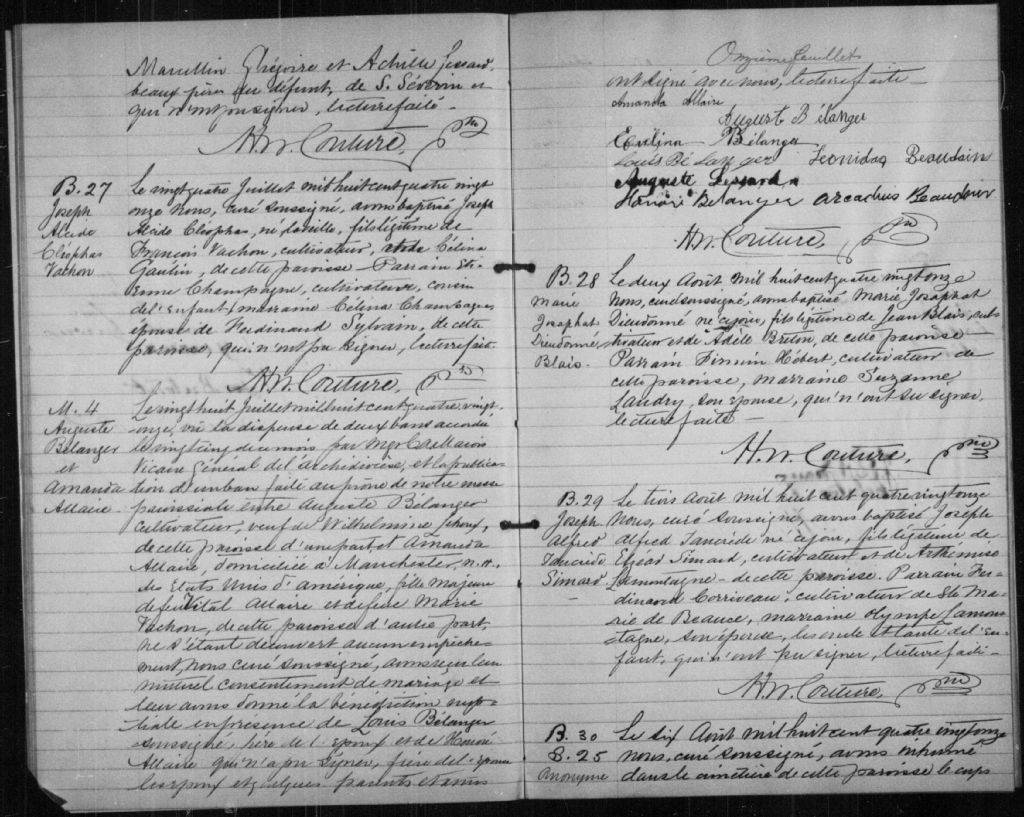 Marcellin Grégoire et Achille Lessard,
beaux pères du défunt, de S. Séverin et
qui n'ont pu signer, lecture faite -
H. N. Couture, Ptre
B. 27
Joseph
Alcide
Cléophas
Vachon
Le vingt quatre Juillet mil huit cent quatre vingt
onze Nous, curé soussigné, avons baptisé Joseph
Alcide Cléophas, né la veille, fils légitime de
François Vachon, cultivateur, et de Célina
Gaulin, de cette paroisse - Parrain Eti-
enne Champagne, cultivateur, cousin
de l'enfant, marraine Célina Champagne
épouse de Ferdinand Sylvain, de cette
paroisse, qui n'ont pu signer, lecture faite.
H. N. Couture, Ptre
M. 4
Auguste
Bélanger
et
Amanda
Allaire -
Le vingt huit Juillet mil huit cent quatre vingt-
onze, vu la dispense de deux bans accordée
le vingt cinq du mois par Mgr C. E. Marois
Vicaire Général de l'Archidiocèse, et la publica-
tion d'un ban faite au prône de notre messe
paroissiale entre Auguste Bélanger
cultivateur, veuf de Wilhelmine
de cette paroisse d'une part et Amanda
Allaire, domiciliée à Manchester, N. H.,
des Etats Unis d'Amérique, fille majeure
de feu Vital Allaire et de feue Marie
Vachon, de cette paroisse d'autre part,
ne s'étant découvert aucun empêche-
ment, Nous curé soussigné, avons reçu leur
mutuel consentement de mariage et
leur avons donné la bénédiction nup-
tiale en présence de Louis Bélanger
soussigné, père de l'époux et de Honoré
Allaire qui n'a pu signer, frère de l'épouse
les époux et quelques parents et amis
Onzième feuillet
ont signé avec nous, lecture faite -
Amanda Allaire
August Bélanger
Exilina Bélanger
Louis Bélanger Leonidas Beaudoin
Auguste Lessard
Honoré Bélanger Arcadius Beaudoin
H. N. Couture, Ptre
B. 28
Marie
Josaphat
Dieudonné
Blais -
Le deux Août mil huit cent quatre vingt onze
Nous, curé soussigné, avons baptisé Marie Josaphat
Dieudonné né ce jour, fils légitime de Jean Blais, cul-
tivateur et de Adèle Breton, de cette paroisse
Parrain Firmin Hébert, cultivateur de
cette paroisse, marraine Suzanne
Landry, son épouse, qui n'ont su signer,
lecture faite -
H. N. Couture, Ptre
B. 29
Joseph
Alfred
Tancrède
Simard
Le trois Août mil huit cent quatre vingt onze
Nous, curé soussigné, avons baptisé Joseph
Alfred Tancrède né ce jour, fils légitime de
Elzéar Simard, cultivateur et de Arthémise
Lamontagne - de cette paroisse. Parrain Fer-
dinand Corriveau, cultivateur de Ste Ma-
rie de Beauce, marraine Olympe Lamon-
tagne, son épouse, les oncle et tante de l'en-
fant, qui n'ont pu signer, lecture faite -
H. N. Couture, Ptre
B. 30
S. 25
Anonyme
Le six Août mil huit cent quatre vingt onze
nous, curé soussigné, avons inhumé
dans le cimetière de cette paroisse le corps